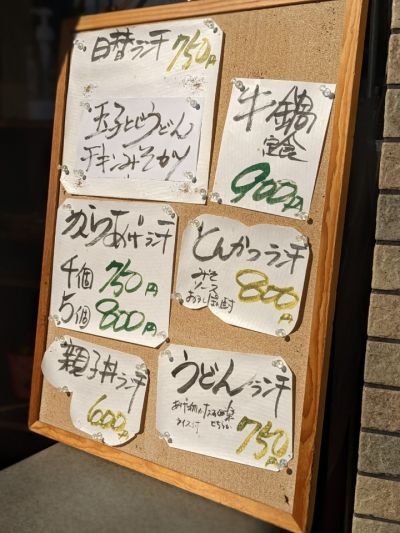 日替ランチ 750円
玉子とじうどん
チキンみそかつ
牛鍋
定食
900円
からあげランチ
4個 750円
5個 800円
とんかつランチ
みそ
ソース
おろし
800円
親子丼ランチ
600円
うどんランチ
ライス付
750円